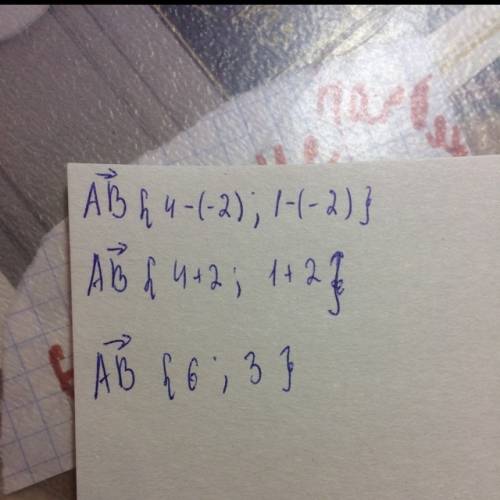 AB⃗ { 4-(-2) ; 1-(-2) }
AB⃗ { 4+2 ; 1+2 }
AB⃗ { 6 ; 3 }